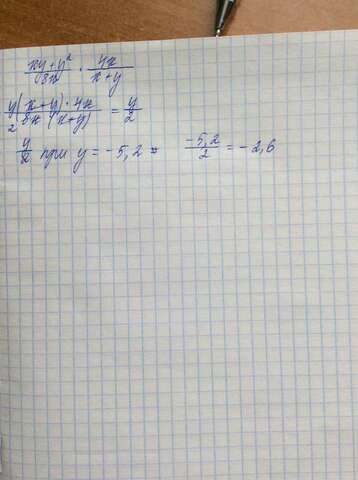 (xy + y²)/(8x) · 4x/(x + y)
y(x + y) · 4x / 2 8x (x + y) = y/2
y/2 при y = -5,2 = -5,2/2 = -2,6